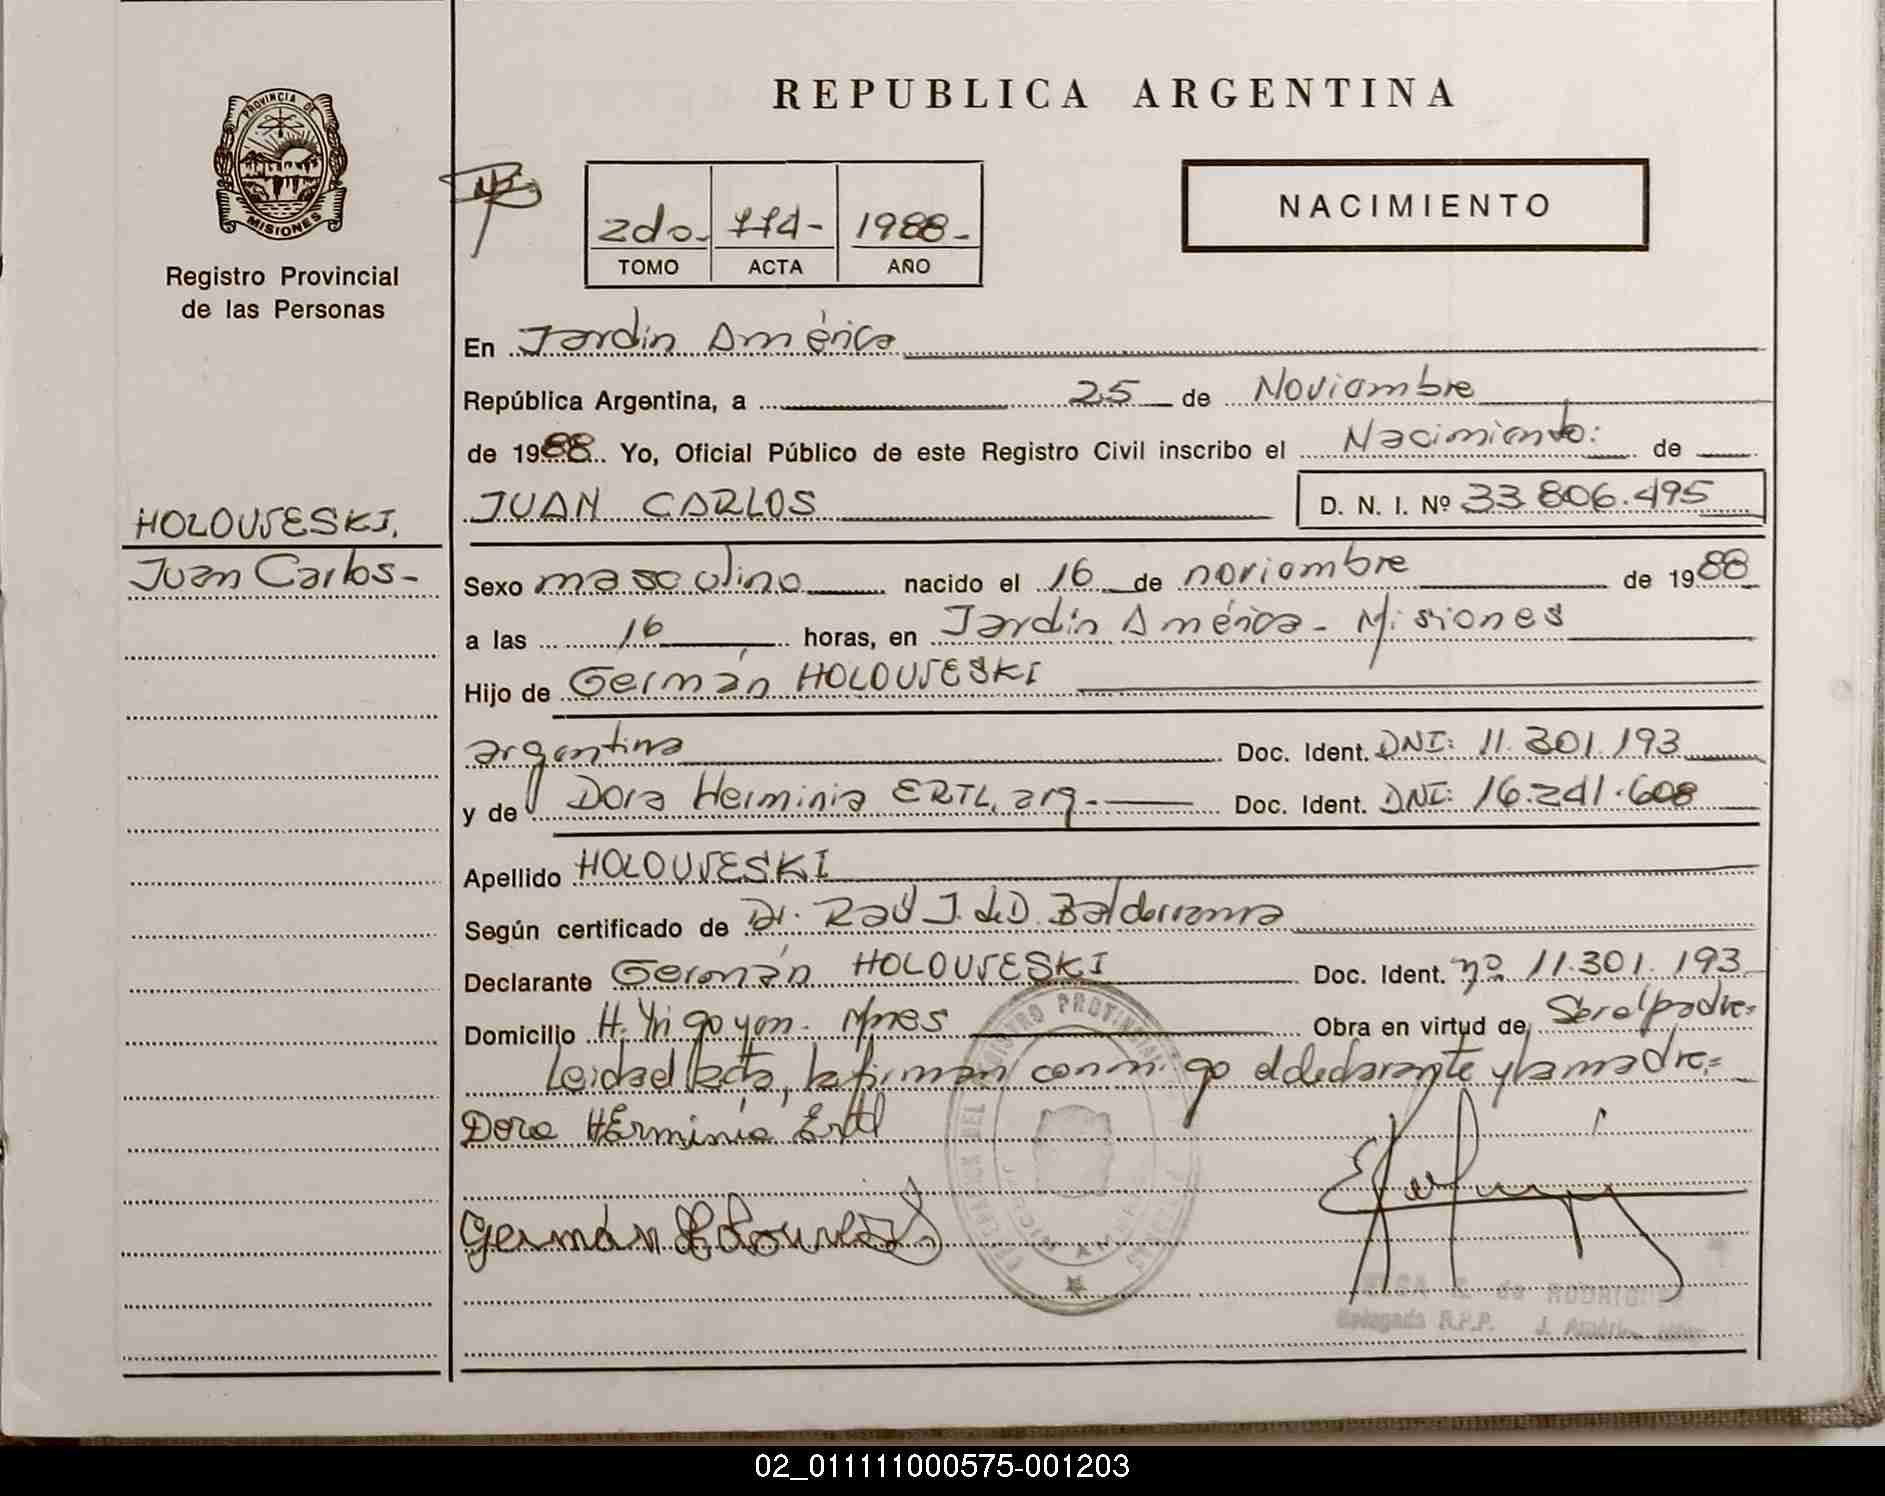 REPUBLICA ARGENTINA
PROVINCIA DE
MISIONES
Registro Provincial
de las Personas
2do. 114- 1988-
TOMO ACTA AÑO
NACIMIENTO
En Jardín América
República Argentina, a 25 de Noviembre
de 1988. Yo, Oficial Público de este Registro Civil inscribo el Nacimiento: de
HOLOUVESKI,
Juan Carlos-
JUAN CARLOS D. N. I. Nº 33.806.495
Sexo masculino nacido el 16 de noviembre de 1988
a las 16 horas, en Jardín América - Misiones
Hijo de Germán HOLOUVESKI
argentina Doc. Ident. DNI: 11.301.193
y de Dora Herminia ERTL, arg.- Doc. Ident. DNI: 16.241.608
Apellido HOLOUVESKI
Según certificado de Dr. Raúl J. de D. Balderrama
Declarante Germán HOLOUVESKI Doc. Ident. nº 11.301.193
Domicilio H. Yrigoyen. Mnes Obra en virtud de Ser el padre=
Leida el acta, la firman conmigo el declarante y la madre.=
Dora HErminia Ertl
Germán
de RODRIGUEZ
Delegada R.P.P. J. América
02_011111000575-001203